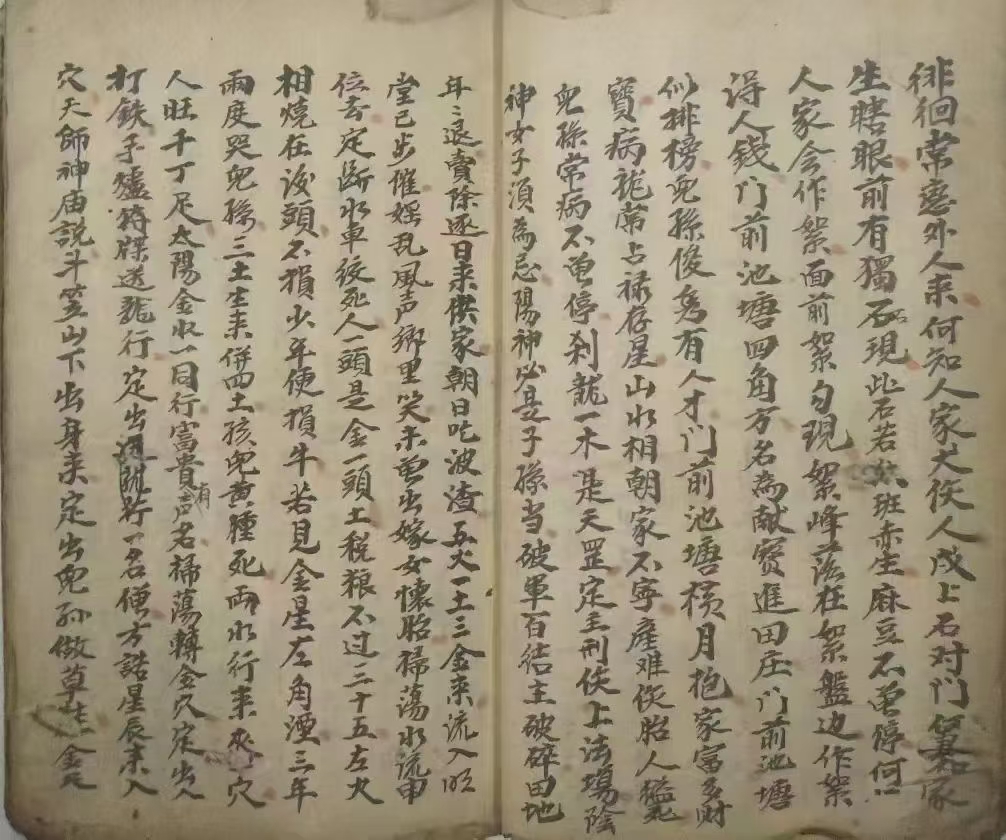 徘徊常惹外人来何知人家犬伤人戌上石对门何知家
生瞎眼前有獨石現此石若班赤生麻豆不曾停何
人家会作絮面前絮勻現絮峰落在絮盤边作絮
得人錢门前池塘四角方名為献宝進田庄门前池塘
似排榜児孫俊秀有人才门前池塘横月抱家富多財
寶病龍常占禄存星山水相朝家不寧產难伤胎人
児孫常病不曾停刹龍一木是天罡定主刑伤上法場陰
神女子須為忌陽神必是子孫当破軍百结主破碎田地
年〻退賣除逐日来供家朝日吃波渣五火一土三金来流入明
堂已步催婬乱風声鄉里笑未曾出嫁女懷胎掃蕩水流申
位去定断水車绞死人一頭是金一頭土税粮不过二十五左火
相燒在後頭不損少年便損牛若見金星左角湮三年
兩庭哭児孫三土生来併四土孩児黄腫死兩水行来夾穴
人旺千丁足太陽金水一同行富貴有声名掃蕩轉金穴定出人
打鉄手爐符牒送龍行定出行一名便方諾星辰来入
穴天師神庙説斗笠山下出身来定出児孙做草